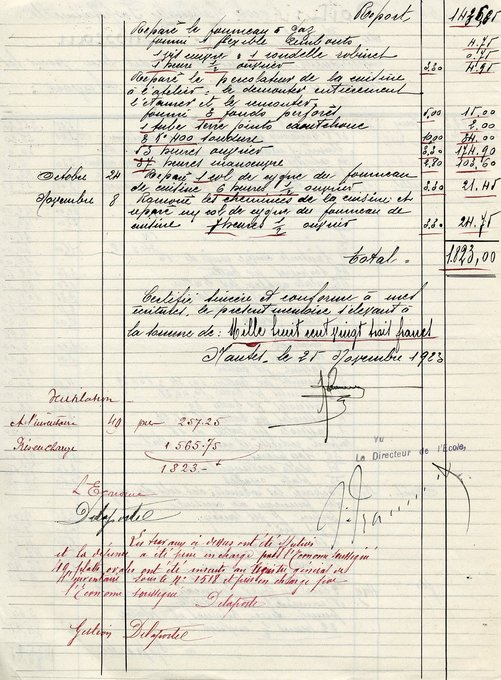 Report 1476,85
Réparé le fourneau à gaz
fourni 1 flexible embouts 4.75
1 rondelle robinet 0.75
1 heure 1/2 ouvrier 3,30 4.95
Réparé le percolateur de la cuisine
à l'atelier: le démonter entièrement
l'étamer et le remonter
fourni 3 fonds perforés 5,00 15.00
1 tube verre joints caoutchouc 2.00
soudure 10,00
53 heures ouvrier 3,30 174.90
37 heures manoeuvre 2,80 103,60
Octobre 24 Réparé 1 col de cygne du fourneau
de cuisine 6 heures 1/2 ouvrier 3.30 21.45
Novembre 8 Ramoné les cheminées de la cuisine et
réparé un col de cygne du fourneau de
cuisine 7 heures 1/2 ouvrier 3.30 24.75
Total = 1.823,00
Certifié sincère et conforme à mes
écritures, le présent mémoire s'élevant à
la somme de: Mille huit cent vingt trois francs
Nantes, le 25 Novembre 1923
Ventilation
A l'inventaire 49 pour 257.25
Pris en charge 1565.75
1823.-
Vu
Le Directeur de l'École,
L'Econome
Delaporte
Les travaux ci dessus ont été
et la dépense a été prise en charge par l'Econome soussigné
plats ovales ont été inscrits au Registre général de
l'Inventaire sous le N° 1518 et pris en charge par
l'Econome soussigné
Delaporte
Gestion Delaporte